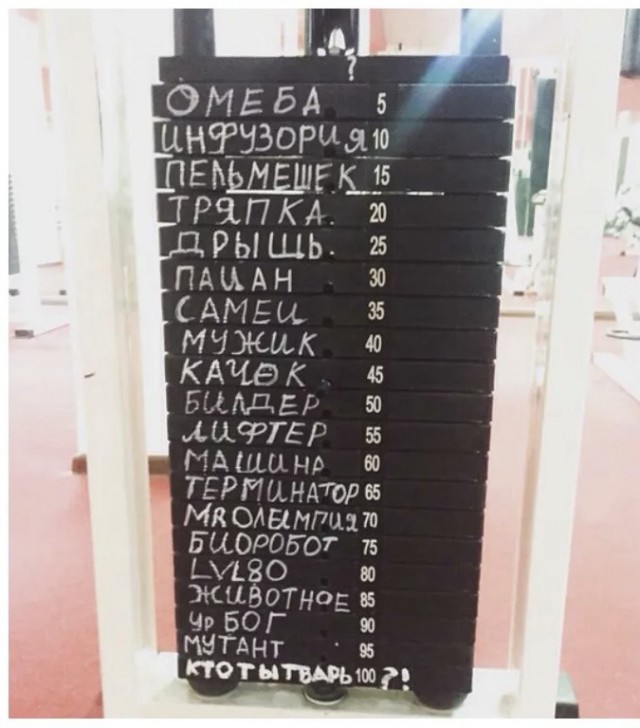 ?
ОМЕБА 5
ИНФУЗОРИЯ 10
ПЕЛЬМЕШЕК 15
ТРЯПКА 20
ДРЫЩЬ. 25
ПАЦАН 30
САМЕЦ 35
МУЖИК 40
КАЧОК 45
БИЛДЕР 50
ЛИФТЕР 55
МАШИНА 60
ТЕРМИНАТОР 65
MR ОЛЫМПИЯ 70
БИОРОБОТ 75
LVL80 80
ЖИВОТНОЕ 85
УР БОГ 90
МУТАНТ 95
КТО ТЫ ТВАРЬ 100 ?!